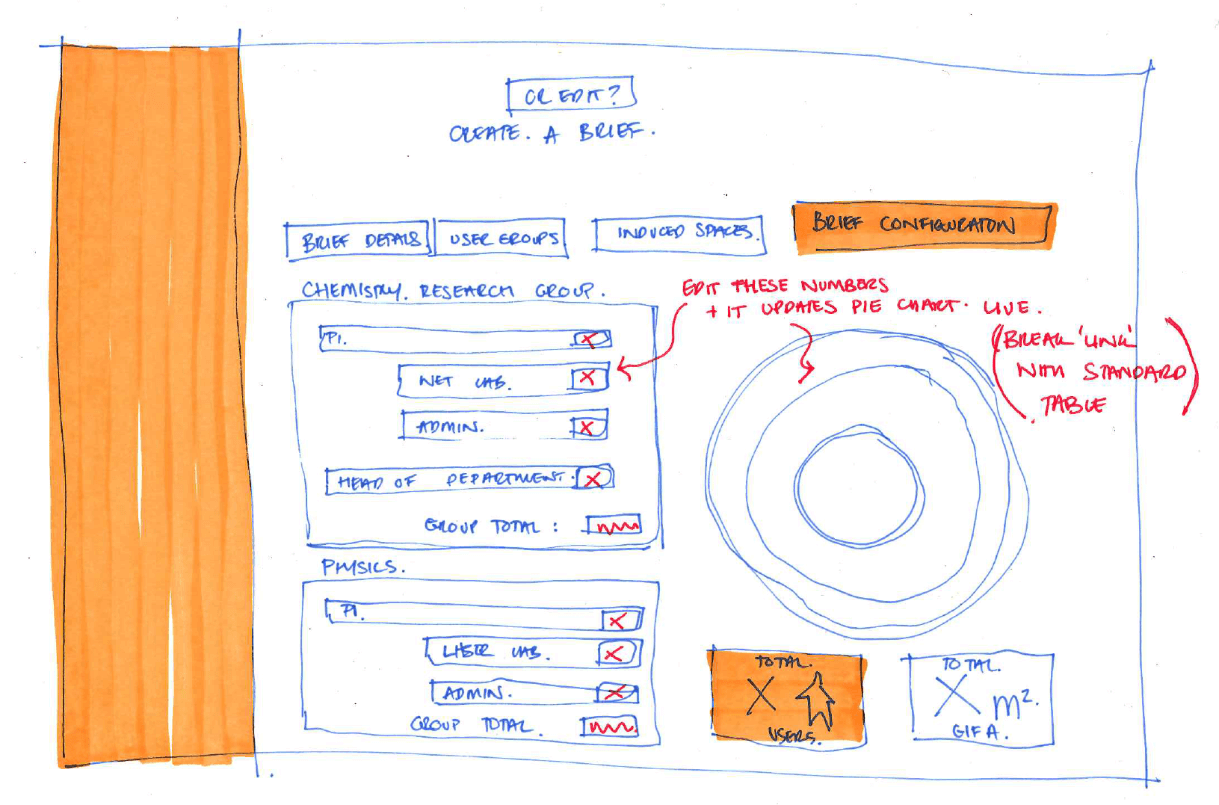 OR EDIT?
CREATE. A BRIEF.
BRIEF DETAILS
USER GROUPS
INDUCED SPACES.
BRIEF CONFIGURATON
CHEMISTRY. RESEARCH GROUP.
PI. X
WET LAB. X
ADMIN. X
HEAD OF DEPARTMENT. X
GROUP TOTAL :
EDIT THESE NUMBERS
+ IT UPDATES PIE CHART. LIVE.
(BREAK 'LINK'
WITH STANDARD
TABLE)
PHYSICS.
PI. X
LASER LAB. X
ADMIN. X
GROUP TOTAL.
TOTAL.
X
USERS.
TOTAL.
X m².
GIFA.